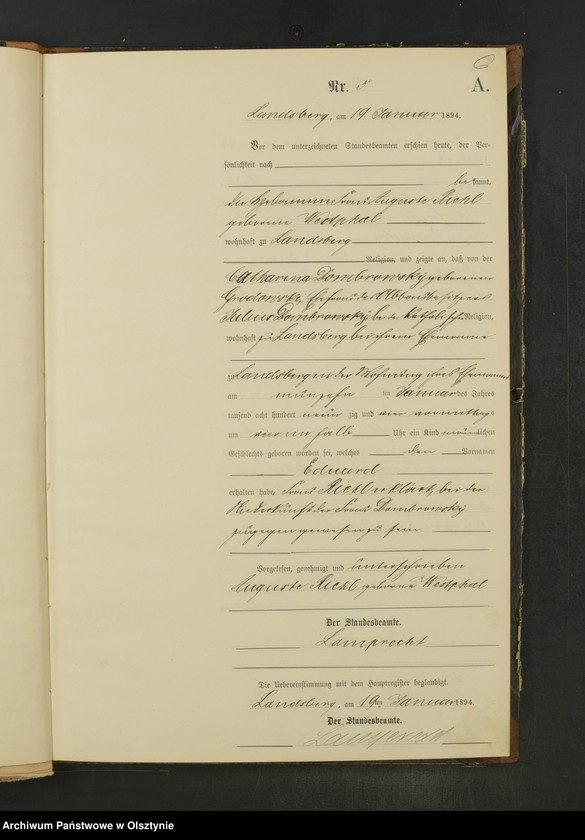 6
Nr. 5 A.
Landsberg, am 19 Januar 1894.
Vor dem unterzeichneten Standesbeamten erschien heute, der Per-
sönlichkeit nach
bekannt,
die Hebamme Frau Auguste Riehl
geborene Westphal
wohnhaft zu Landsberg
Religion, und zeigte an, daß von der
Catharina Dombrowsky geborenen
Ehefrau des
Julius Dombrowsky beide katholischer Religion,
wohnhaft zu Landsberg bei ihrem Ehemanne
zu Landsberg in der Wohnung ihres Ehemannes
am ten Januar des Jahres
tausend acht hundert neunzig und vier vormittags
um vier ein halb Uhr ein Kind männlichen
Geschlechts geboren worden sei, welches den Vornamen
Eduard
erhalten habe. Frau Riehl erklärt, bei der
Niederkunft der Frau Dombrowsky
zugegen gewesen zu sein
Vorgelesen, genehmigt und unterschrieben
Auguste Riehl geborne Westphal
Der Standesbeamte.
Lamprecht
Die Uebereinstimmung mit dem Hauptregister beglaubigt.
Landsberg, am 19ten Januar 1894.
Der Standesbeamte.
Lamprecht
Archiwum Państwowe w Olsztynie